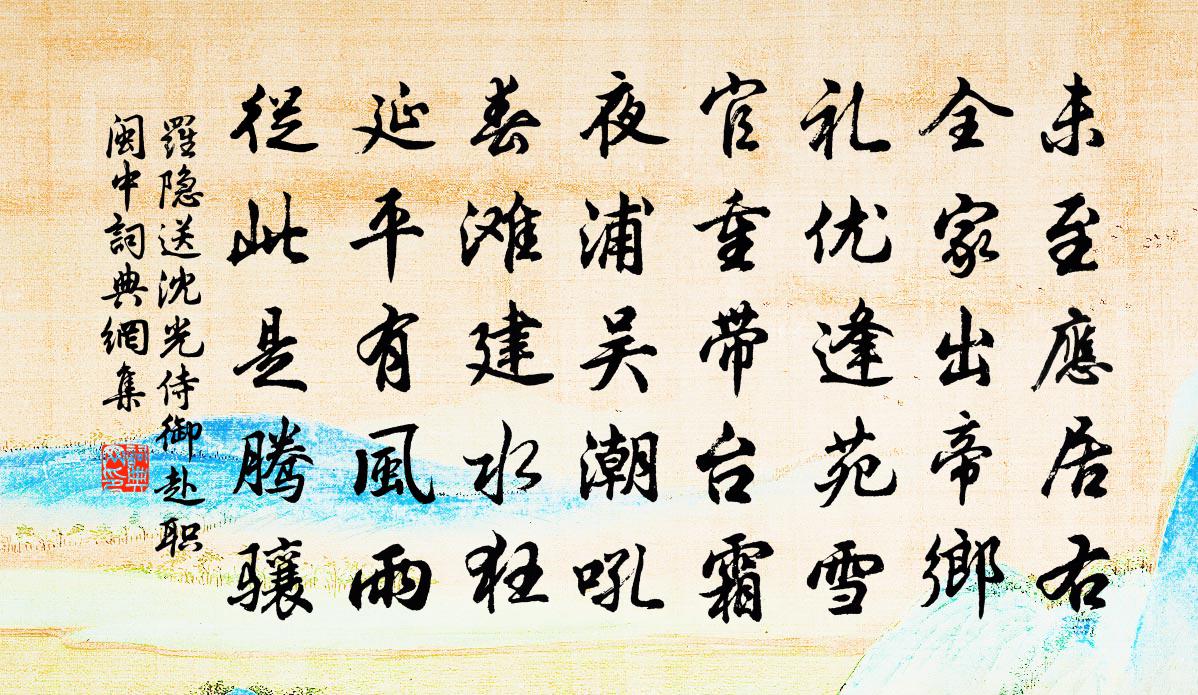 未至應居右
全家出帝鄉
礼优逢苑雪
官重带台霜
夜浦吴潮吼
春滩建水狂
延平有風雨
從此是腾骧
羅隐送沈光侍御赴职
闽中詞典網集